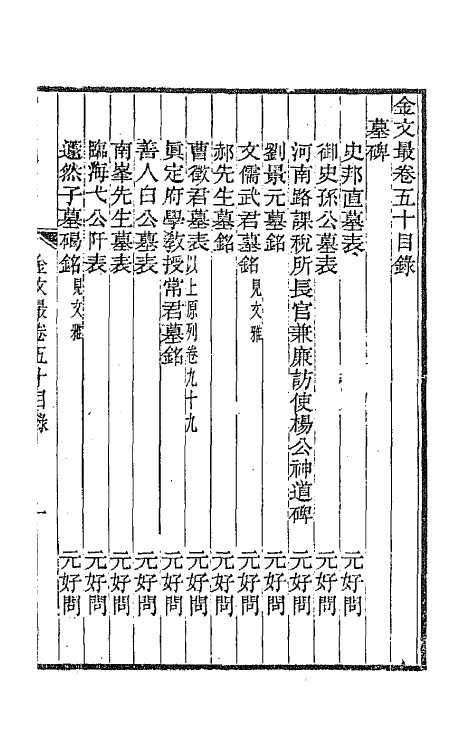 金文最卷五十目錄
墓碑
史邦直墓表 元好問
御史孫公墓表 元好問
河南路課稅所長官兼廉訪使楊公神道碑 元好問
劉景元墓銘 元好問
文儒武君墓銘見文雅 元好問
郝先生墓銘 元好問
曹徵君墓表以上原列卷九十九 元好問
眞定府學敎授常君墓銘 元好問
善人白公墓表 元好問
南峯先生墓表 元好問
臨海弋公阡表 元好問
蘧然子墓碣銘見文雅 元好問
金文最卷五十目錄 一